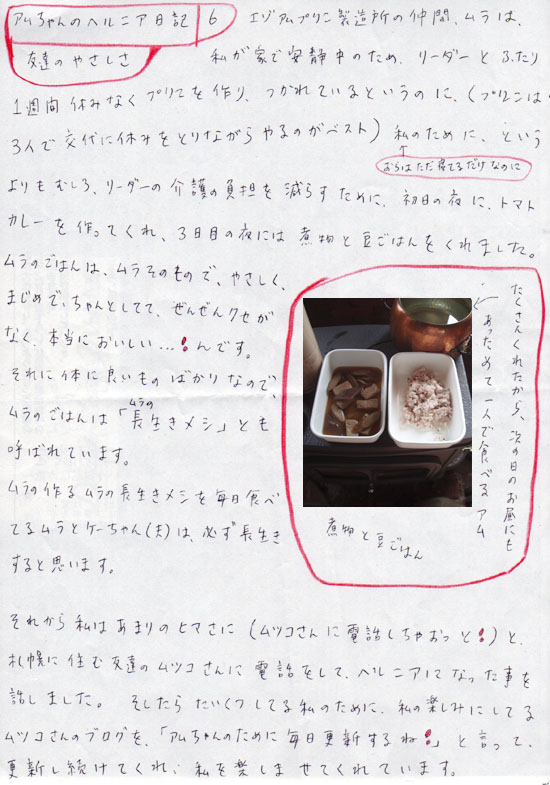 アムちゃんのヘルニア日記 6
友達のやさしさ
エゾアムプリン製造所の仲間、ムラは、
私が家で安静中のため、リーダーとふたり
1週間休みなくプリンを作り、つかれているというのに、(プリンは
3人で交代に休みをとりながらやるのがベスト) 私のために、という
おらはただ寝てるだけなのに
よりもむしろ、リーダーの介護の負担を減らすために、初日の夜に、トマト
カレーを作ってくれ、3日目の夜には煮物と豆ごはんをくれました。
ムラのごはんは、ムラそのもので、やさしく、
まじめで、ちゃんとしてて、ぜんぜんクセが
なく、本当においしい…!んです。
それに体に良いものばかりなので、
ムラのごはんは「ムラの長生きメシ」とも
呼ばれています。
ムラの作るムラの長生きメシを毎日食べ
てるムラとケーちゃん(夫)は、必ず長生き
すると思います。
たくさんくれたから、次の日のお昼にも
あっためて一人で食べるアム
煮物と豆ごはん
それから私はあまりのヒマさに(ムツコさんに電話しちゃおっと!)と、
札幌に住む友達のムツコさんに電話をして、ヘルニアになった事を
話しました。そしたらたいくつしてる私のために、私の楽しみにしてる
ムツコさんのブログを、「アムちゃんのために毎日更新するね!」と言って、
更新し続けてくれ、私を楽しませてくれています。